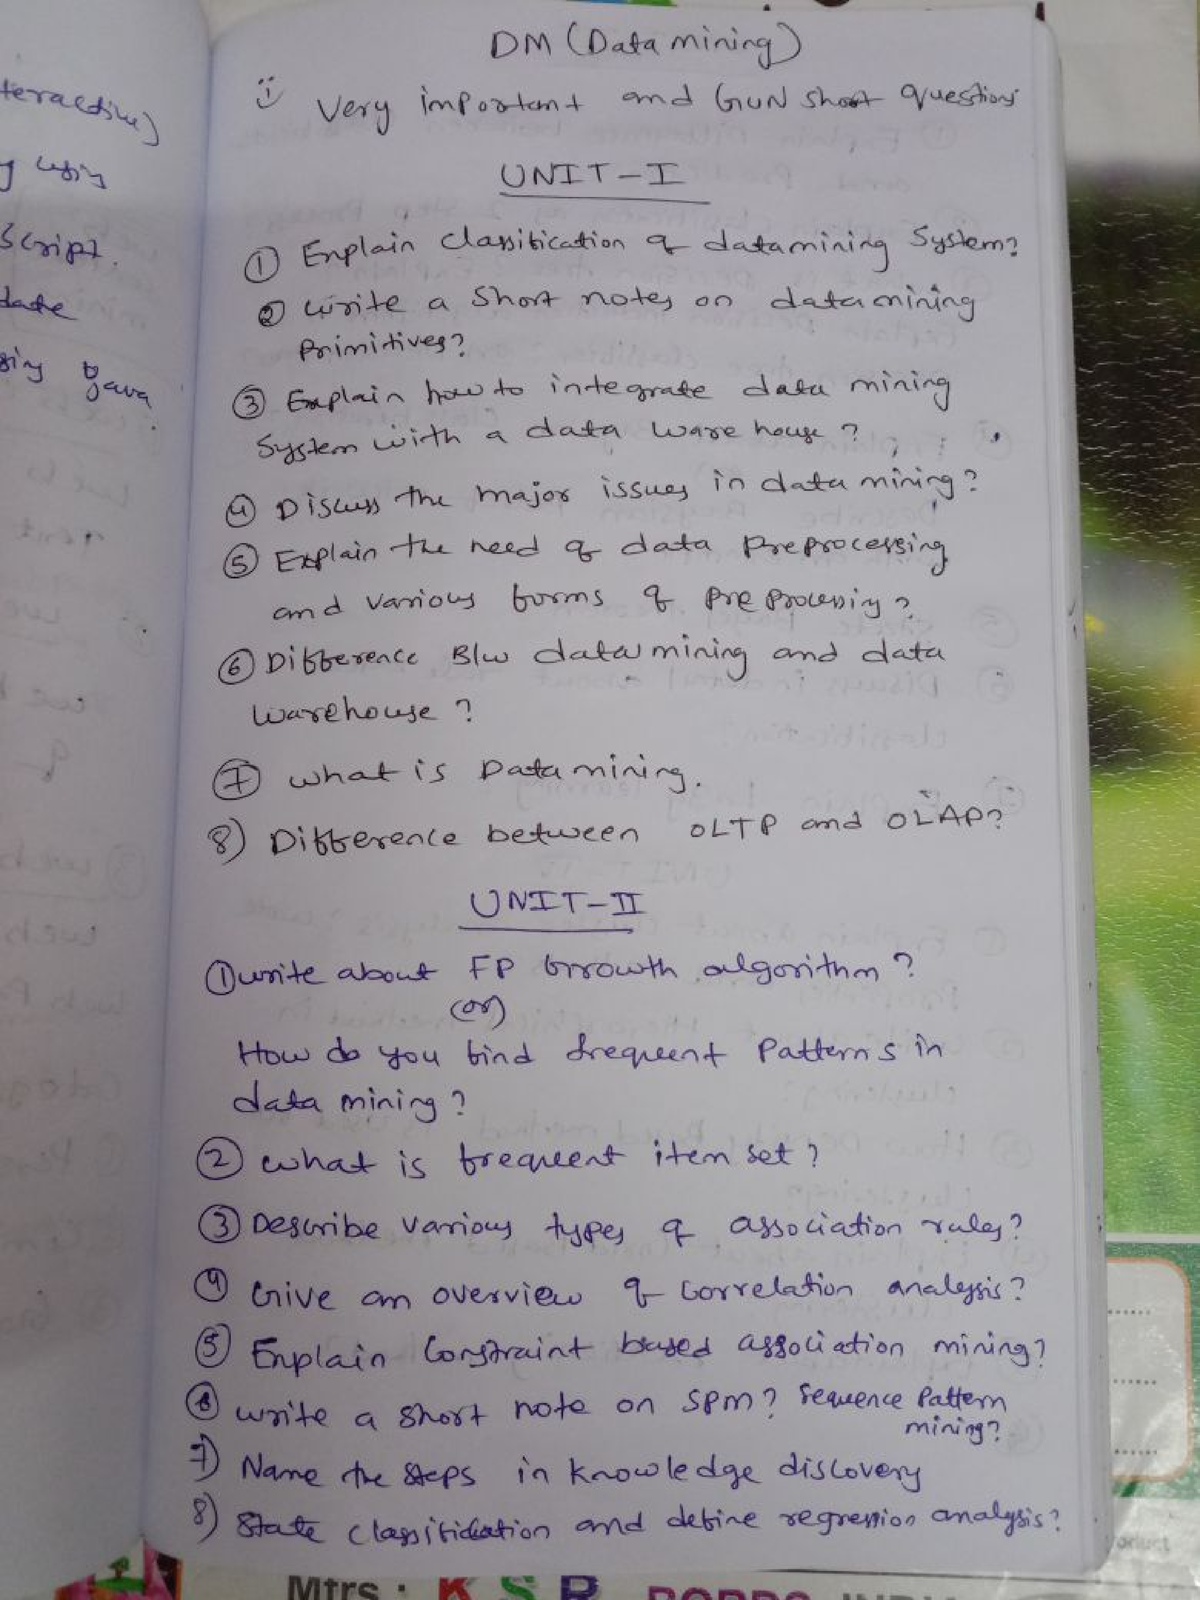 teractive)
y using
Script.
date
sing Java.
DM (Data mining)
Very important and GUN short questions
UNIT-I
① Explain classification of datamining System?
② Write a short notes on datamining
Primitives?
③ Explain how to integrate data mining
System with a data ware house?
④ Discuss the major issues in data mining?
⑤ Explain the need of data Preprocessing
and various forms of preprocessing?
⑥ Difference B/w data mining and data
warehouse?
⑦ what is Datamining.
8) Difference between OLTP and OLAP?
UNIT-II
① write about FP Growth algorithm?
(or)
How do you find frequent Patterns in
data mining?
② what is frequent item set?
③ Describe various types of association rules?
④ Give an overview of correlation analysis?
⑤ Explain Constraint based association mining?
⑥ write a short note on SPM? Sequence Pattern
mining?
7) Name the steps in knowledge discovery
8) State classification and define regression analysis?
Mtrs : KSR